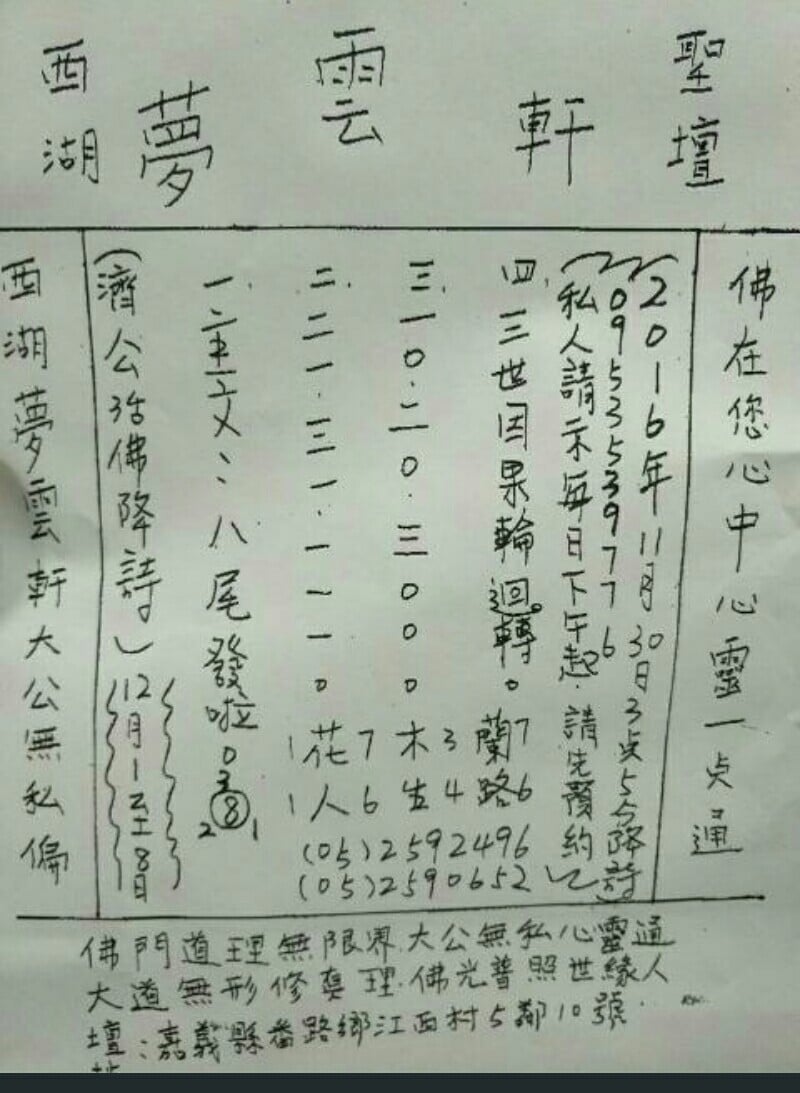 西湖夢雲軒聖壇
西湖夢雲軒大公無私偏
(濟公活佛降詩)12月1至8日
八尾發啦
038
2 1
二.二一.三一.一一一。
三.一0.二0.三000。
四.三世因果輪迴轉。
1花7木3蘭7
1人6生4路6
(05)2592496
(05)2590652
(私人請示每日下午起.請先預約)
0953539776
2016年11月30日3点5分降詩)
佛在您心中心靈一点通
佛門道理無限界.大公無私心靈通
大道無形修真理.佛光普照世緣人
壇:嘉義縣番路鄉江西村5鄰10號.